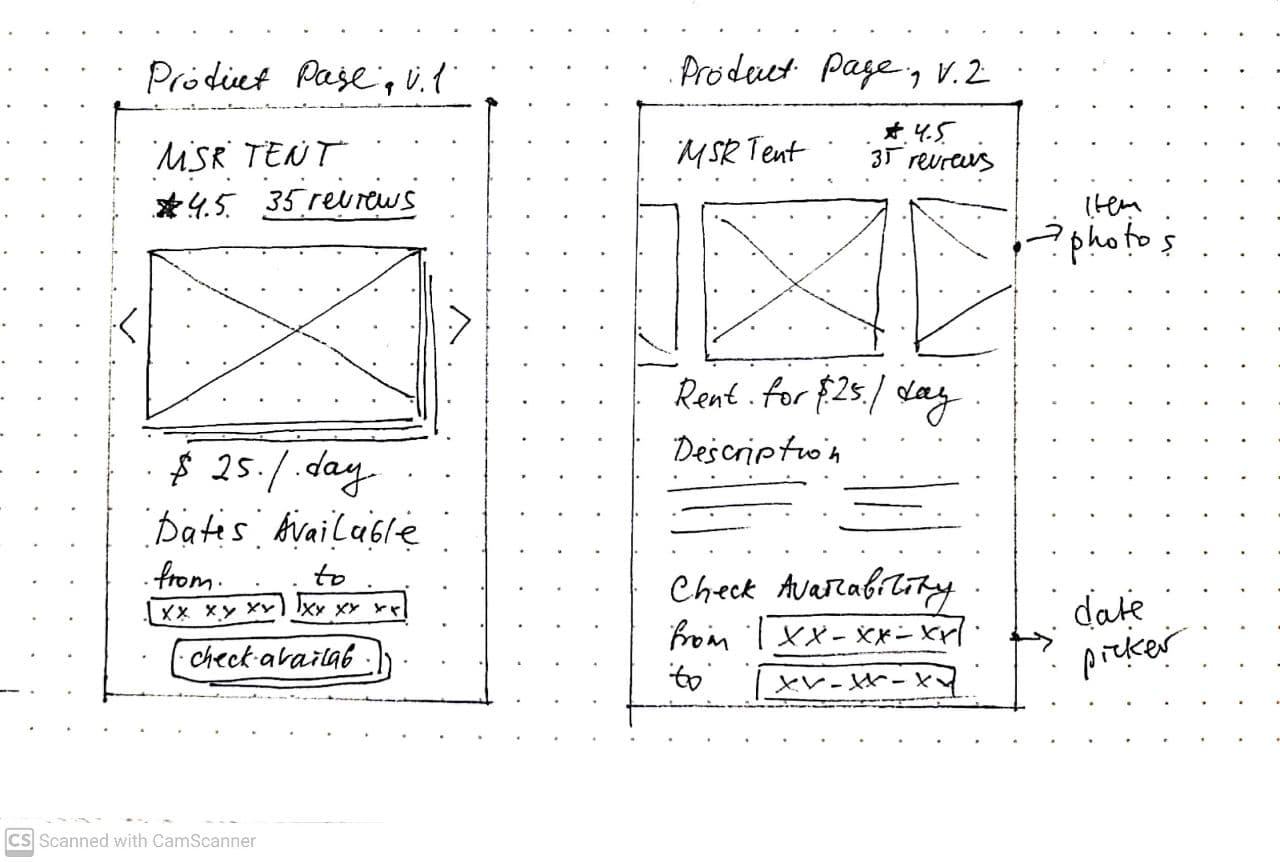 Product Page, v.1
MSR TENT
★ 4.5 35 reviews
< >
$ 25./.day
Dates Available
from to
xx xx xx xx xx xx
check availab
Product Page, v.2
MSR Tent
★ 4.5
35 reviews
Item
photos
Rent for $25./ day
Description
Check Availability
from xx-xx-xx
to xx-xx-xx
date
picker
CS Scanned with CamScanner